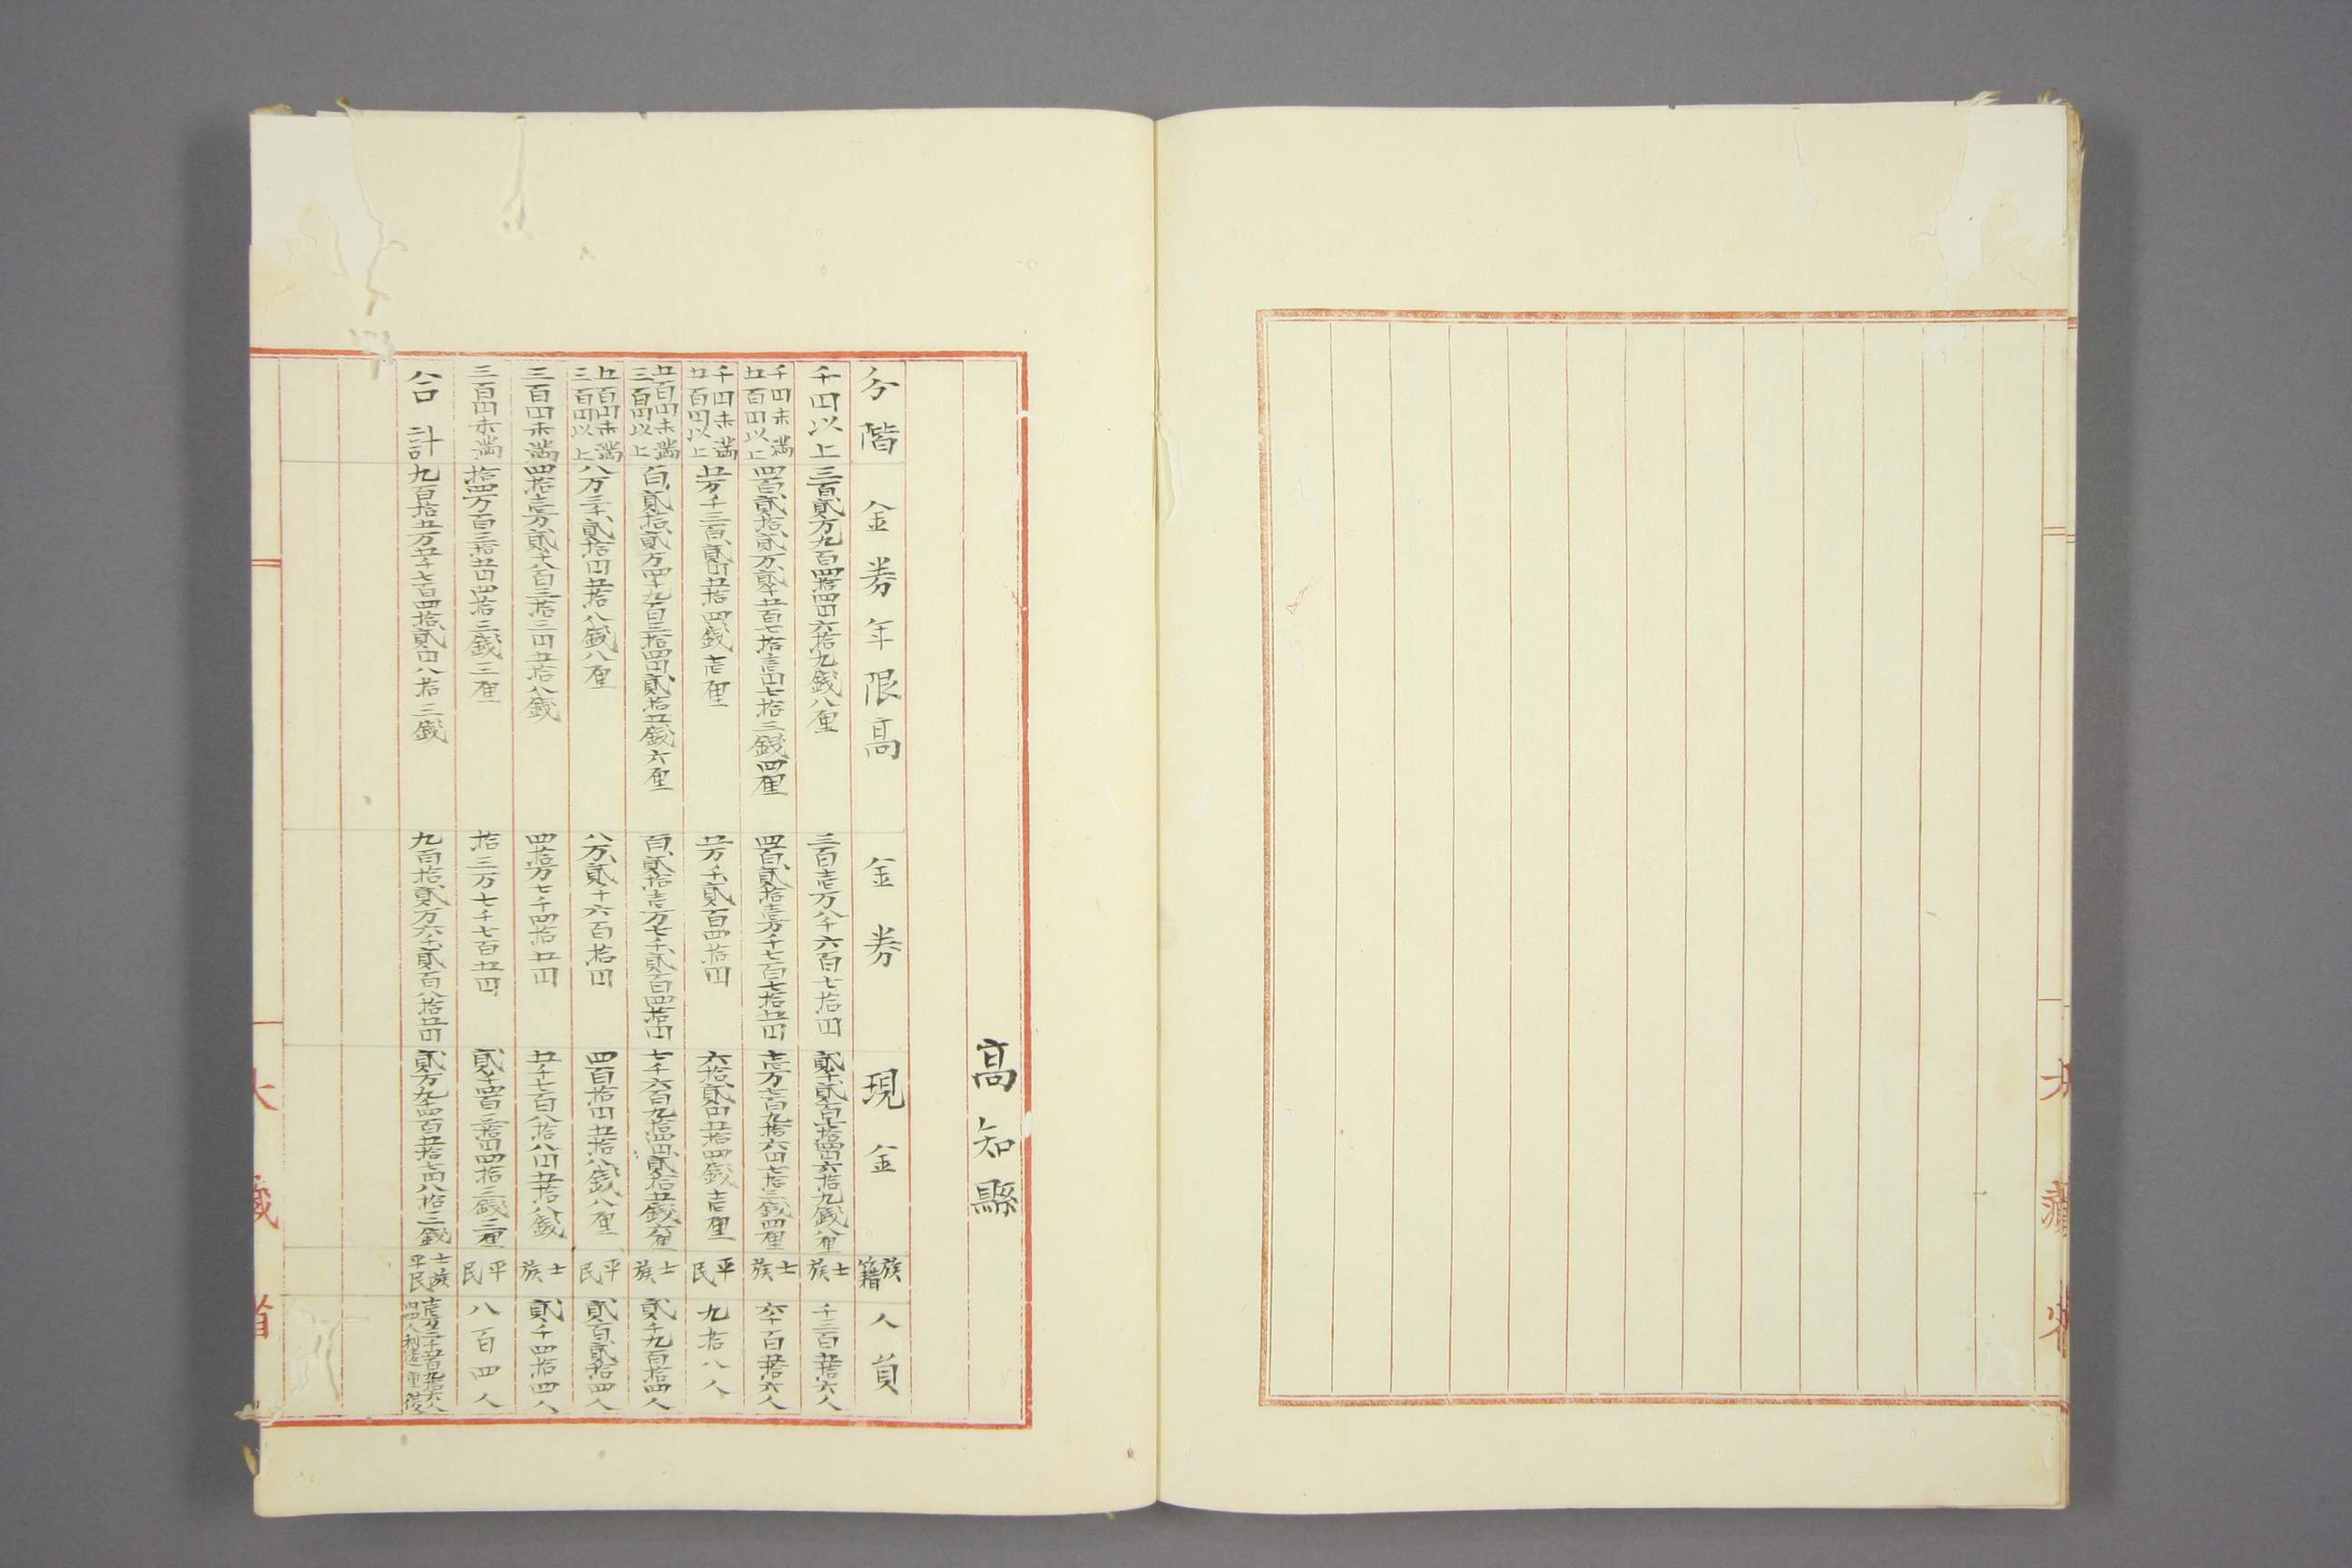 高知縣
分階 金券年限高 金券 現金 族籍 人員
千円以上 三百貳万九百四拾四円六拾九銭八厘 三百壱万八千六百七拾円 貳千貳百七拾四円六拾九銭八厘 士族 千三百五拾六人
千円未満五百円以上 四百貳拾貳万貳千五百七拾壱円七拾三銭四厘 四百貳拾壱万千七百七拾五円 壱万七百九拾六円七拾三銭四厘 士族 六千百五拾六人
千円未満五百円以上 五万千三百貳円五拾四銭壱厘 五万千貳百四拾円 六拾貳円五拾四銭壱厘 平民 九拾八人
五百円未満三百円以上 百貳拾貳万四千九百三拾四円貳拾五銭六厘 百貳拾壱万七千貳百四拾円 七千六百九拾四円貳拾五銭六厘 士族 貳千九百拾四人
五百円未満三百円以上 八万三千貳拾円五拾八銭八厘 八万貳千六百拾円 四百拾円五拾八銭八厘 平民 貳百貳拾四人
三百円未満 四拾壱万貳千八百三拾三円五拾八銭 四拾万七千四拾五円 五千七百八拾八円五拾八銭 士族 貳千四拾四人
三百円未満 拾四万百三拾五円四拾三銭三厘 拾三万七千七百五円 貳千四百三拾円四拾三銭三厘 平民 八百四人
合計 九百拾五万五千七百四拾貳円八拾三銭 九百拾貳万六千貳百八拾五円 貳万九千四百五拾七円八拾三銭 士族平民 壱万三千五百九拾六人 内四人利違重複
大藏省